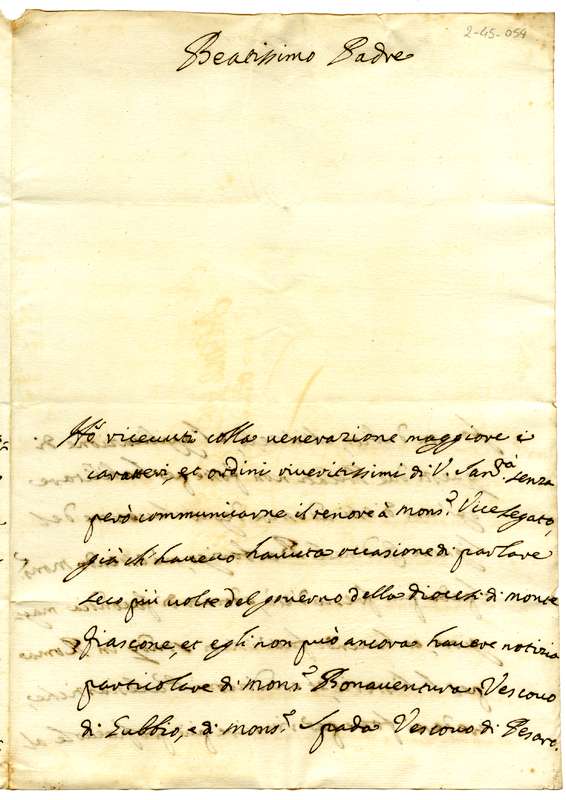 2-45-054
Beatissimo Padre
Hò ricevuti colla venerazione maggiore i
caratteri, et ordini riveritissimi di V. San.tà senza
però communicarne il tenore à Mons.r Vicelegato,
già ch'havevo havuta occasione di parlare
seco più volte del governo della diocesi di monte
fiascone, et egli non può ancora havere notizia
particolare di Mons.r Bonaventura Vescovo
di Gubbio, e di Mons.r Spada Vescovo di Pesaro.